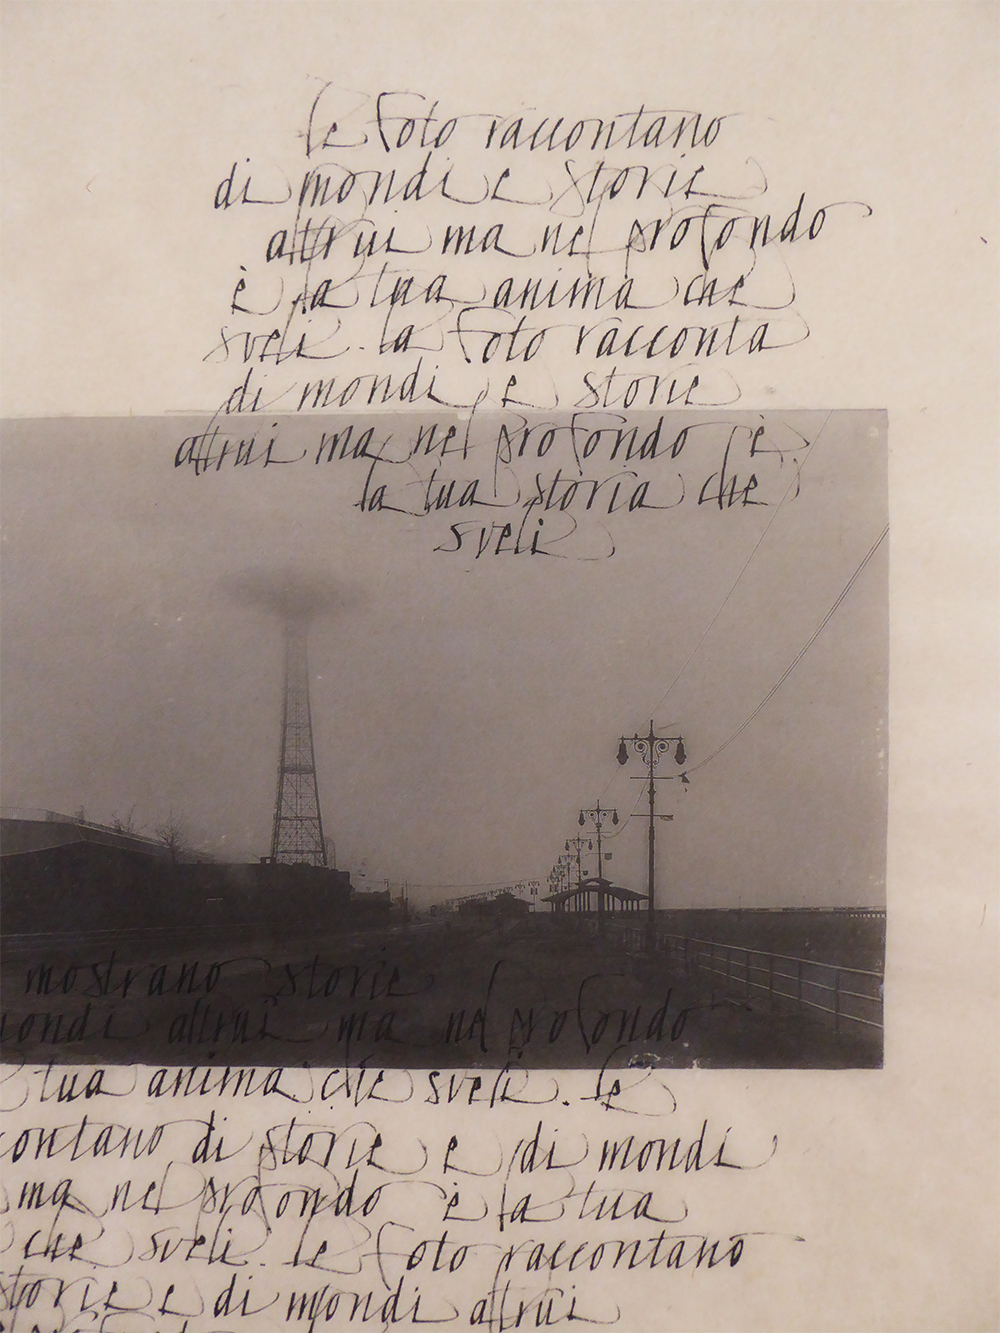 le foto raccontano
di mondi e storie
altrui ma nel profondo
è la tua anima che
sveli. la foto racconta
di mondi e storie
altrui ma nel profondo è
la tua storia che
sveli
mostrano storie
mondi altrui ma nel profondo
tua anima che sveli. le
contano di storie e di mondi
ma nel profondo è la tua
che sveli. le foto raccontano
storie e di mondi altrui